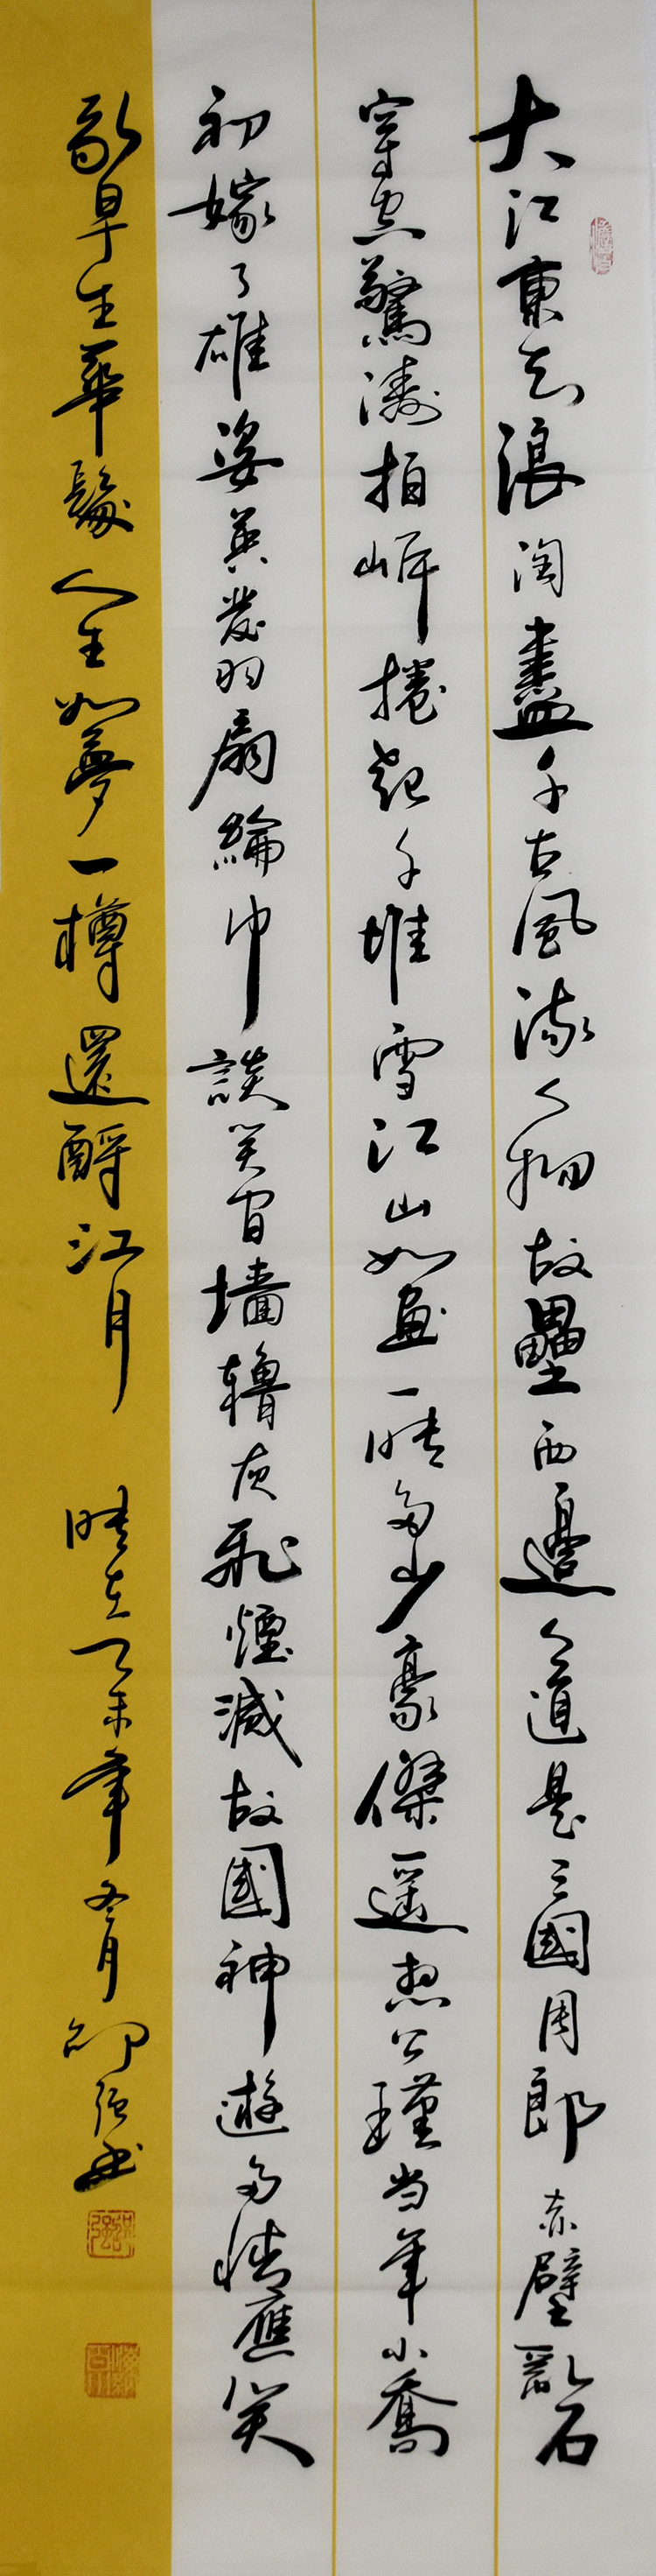 大江東去浪淘盡千古風流人物故壘西邊人道是三國周郎赤壁亂石
穿空驚濤拍岸捲起千堆雪江山如畫一時多少豪傑遥想公瑾当年小喬
初嫁了雄姿英發羽扇綸巾談笑间墙櫓灰飛煙滅故國神遊多情應笑
我早生華髮人生如夢一樽還酹江月 時在乙未年冬月邵强書